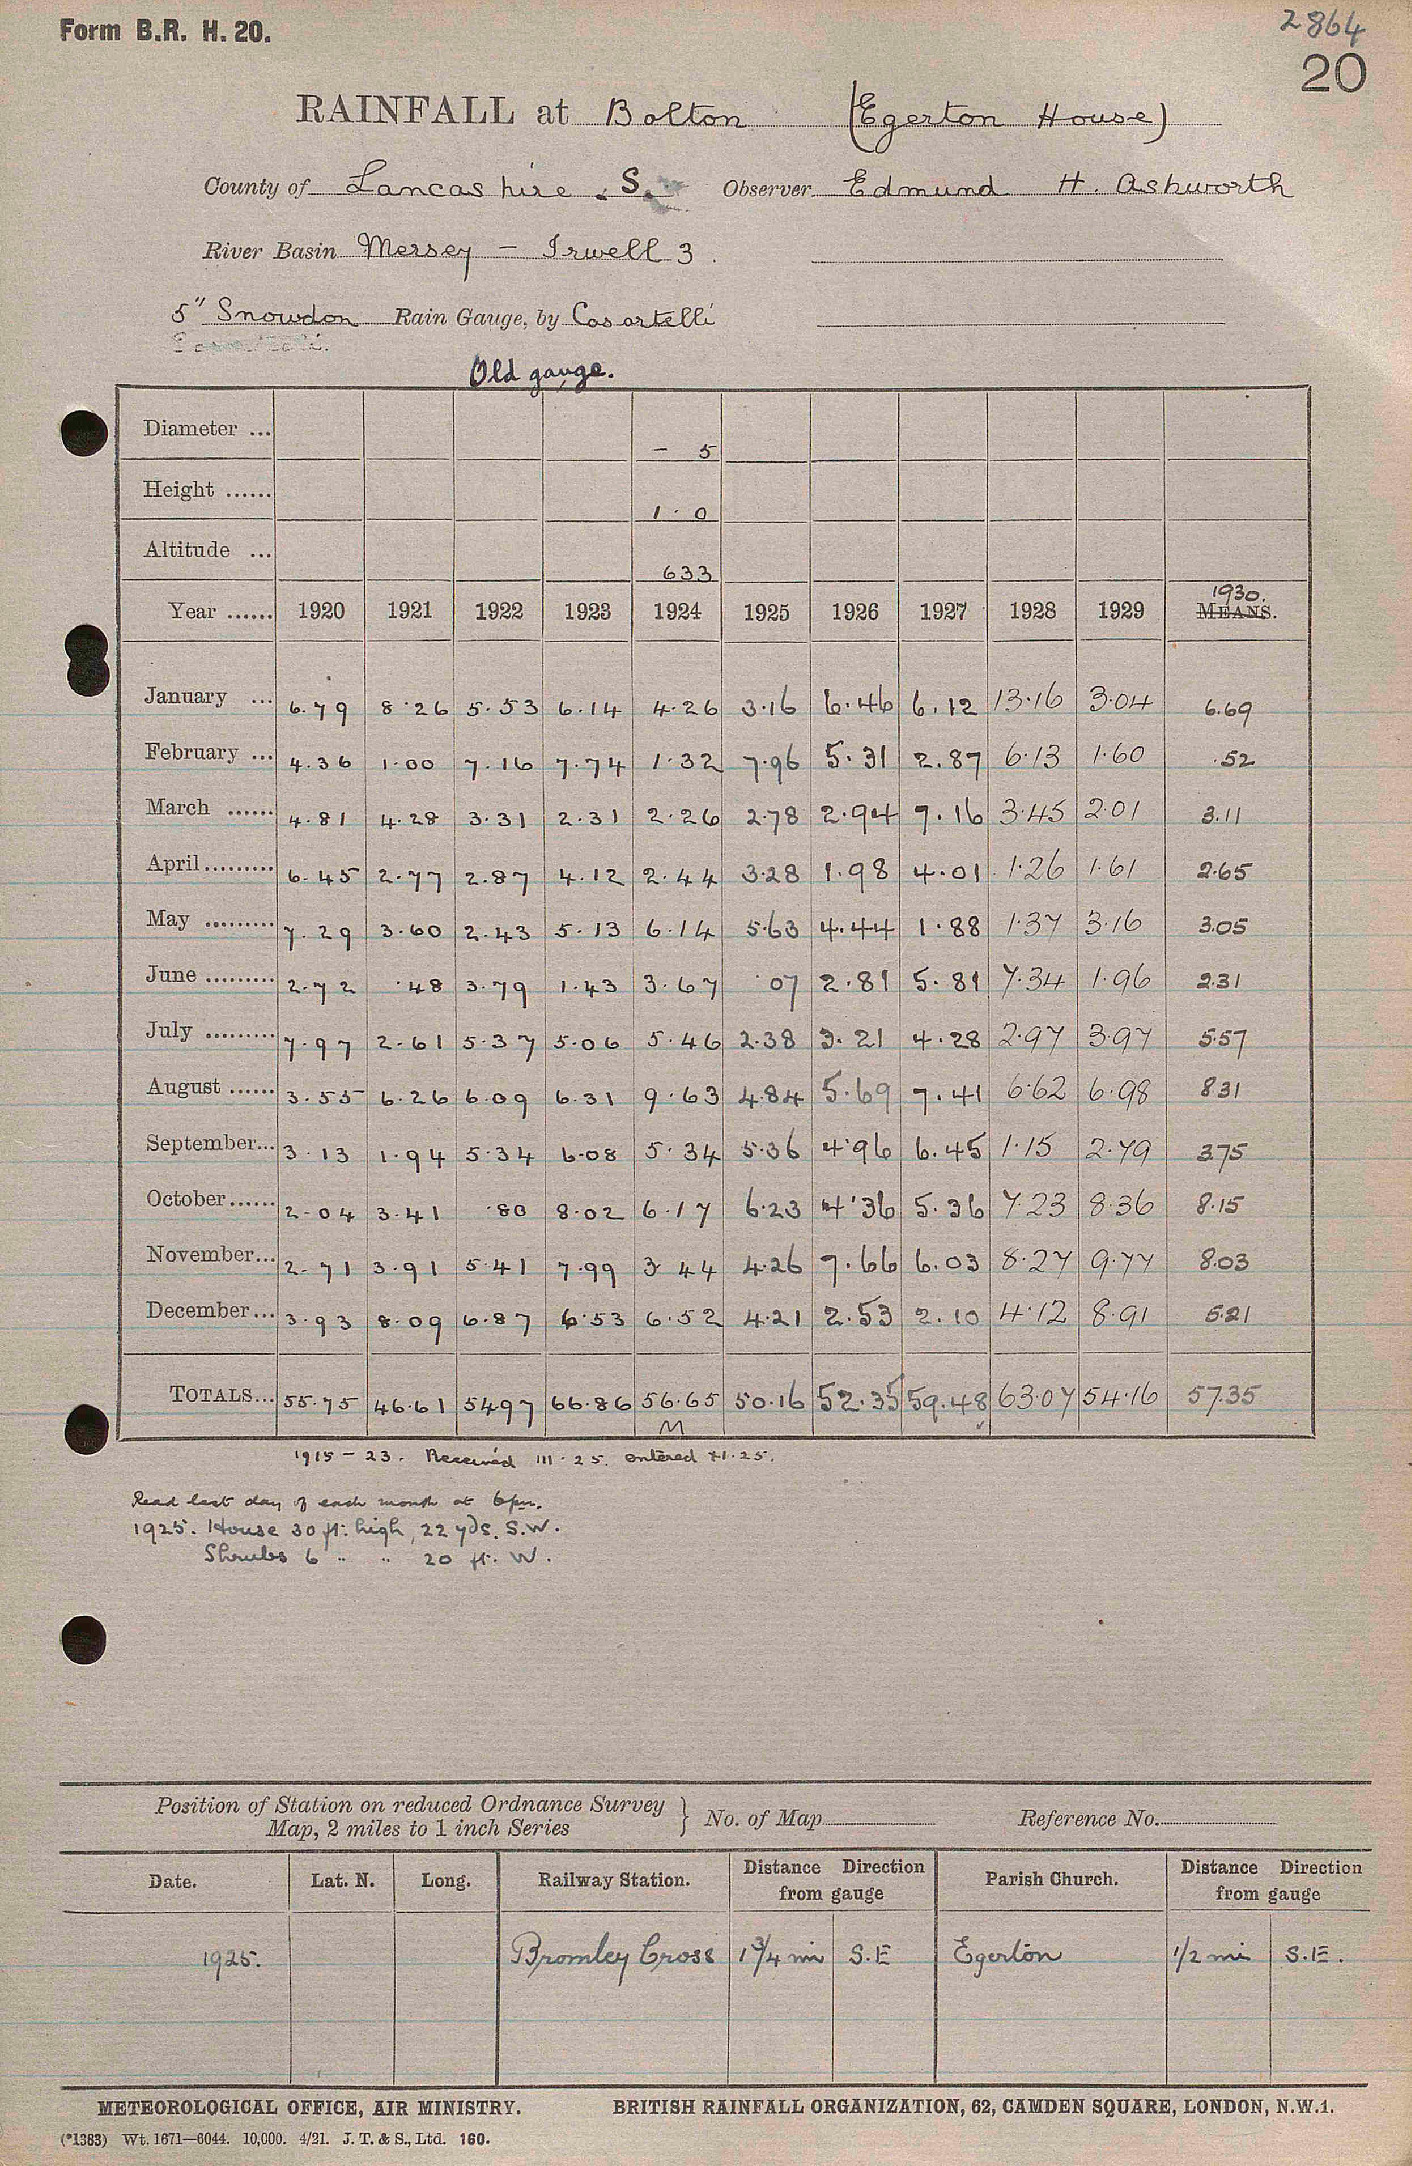 Form B.R. H. 20.
2864
20
RAINFALL at Bolton (Egerton House)
County of Lancashire. S. Observer Edmund H. Ashworth
River Basin Mersey – Irwell 3.
5" Snowdon Rain Gauge, by Casartelli
Old gauge.
Diameter ... – 5
Height ...... 1 · 0
Altitude ... 633
Year ...... 1920 1921 1922 1923 1924 1925 1926 1927 1928 1929 1930. MEANS.
January ... 6.79 8.26 5.53 6.14 4.26 3.16 6.46 6.12 13.16 3.04 6.69
February ... 4.36 1.00 7.16 7.74 1.32 7.96 5.31 2.87 6.13 1.60 .52
March ...... 4.81 4.28 3.31 2.31 2.26 2.78 2.94 7.16 3.45 2.01 3.11
April ......... 6.45 2.77 2.87 4.12 2.44 3.28 1.98 4.01 1.26 1.61 2.65
May ......... 7.29 3.60 2.43 5.13 6.14 5.63 4.44 1.88 1.37 3.16 3.05
June ......... 2.72 .48 3.79 1.43 3.67 .07 2.81 5.81 7.34 1.96 2.31
July ......... 7.97 2.61 5.37 5.06 5.46 2.38 3.21 4.28 2.97 3.97 5.57
August ...... 3.55 6.26 6.09 6.31 9.63 4.84 5.69 7.41 6.62 6.98 8.31
September... 3.13 1.94 5.34 6.08 5.34 5.36 4.96 6.45 1.15 2.79 3.75
October ...... 2.04 3.41 .80 8.02 6.17 6.23 4.36 5.36 7.23 8.36 8.15
November... 2.71 3.91 5.41 7.99 3.44 4.26 7.66 6.03 8.27 9.77 8.03
December... 3.93 8.09 6.87 6.53 6.52 4.21 2.53 2.10 4.12 8.91 5.21
TOTALS... 55.75 46.61 54.97 66.86 56.65 50.16 52.35 59.48 63.07 54.16 57.35
M
1915 – 23. Received III.25. entered
Read last day of each month at 6pm.
1925. House 30 ft. high, 22 yds. S.W.
Shrubs 6 " " 20 ft. W.
Position of Station on reduced Ordnance Survey
Map, 2 miles to 1 inch Series } No. of Map Reference No.
Date. Lat. N. Long. Railway Station. Distance Direction from gauge Parish Church. Distance Direction from gauge
1925. Bromley Cross 1 3/4 mi S.E Egerton 1/2 mi S.E.
METEOROLOGICAL OFFICE, AIR MINISTRY. BRITISH RAINFALL ORGANIZATION, 62, CAMDEN SQUARE, LONDON, N.W.1.
(*1383) Wt. 1671—6044. 10,000. 4/21. J. T. & S., Ltd. 160.